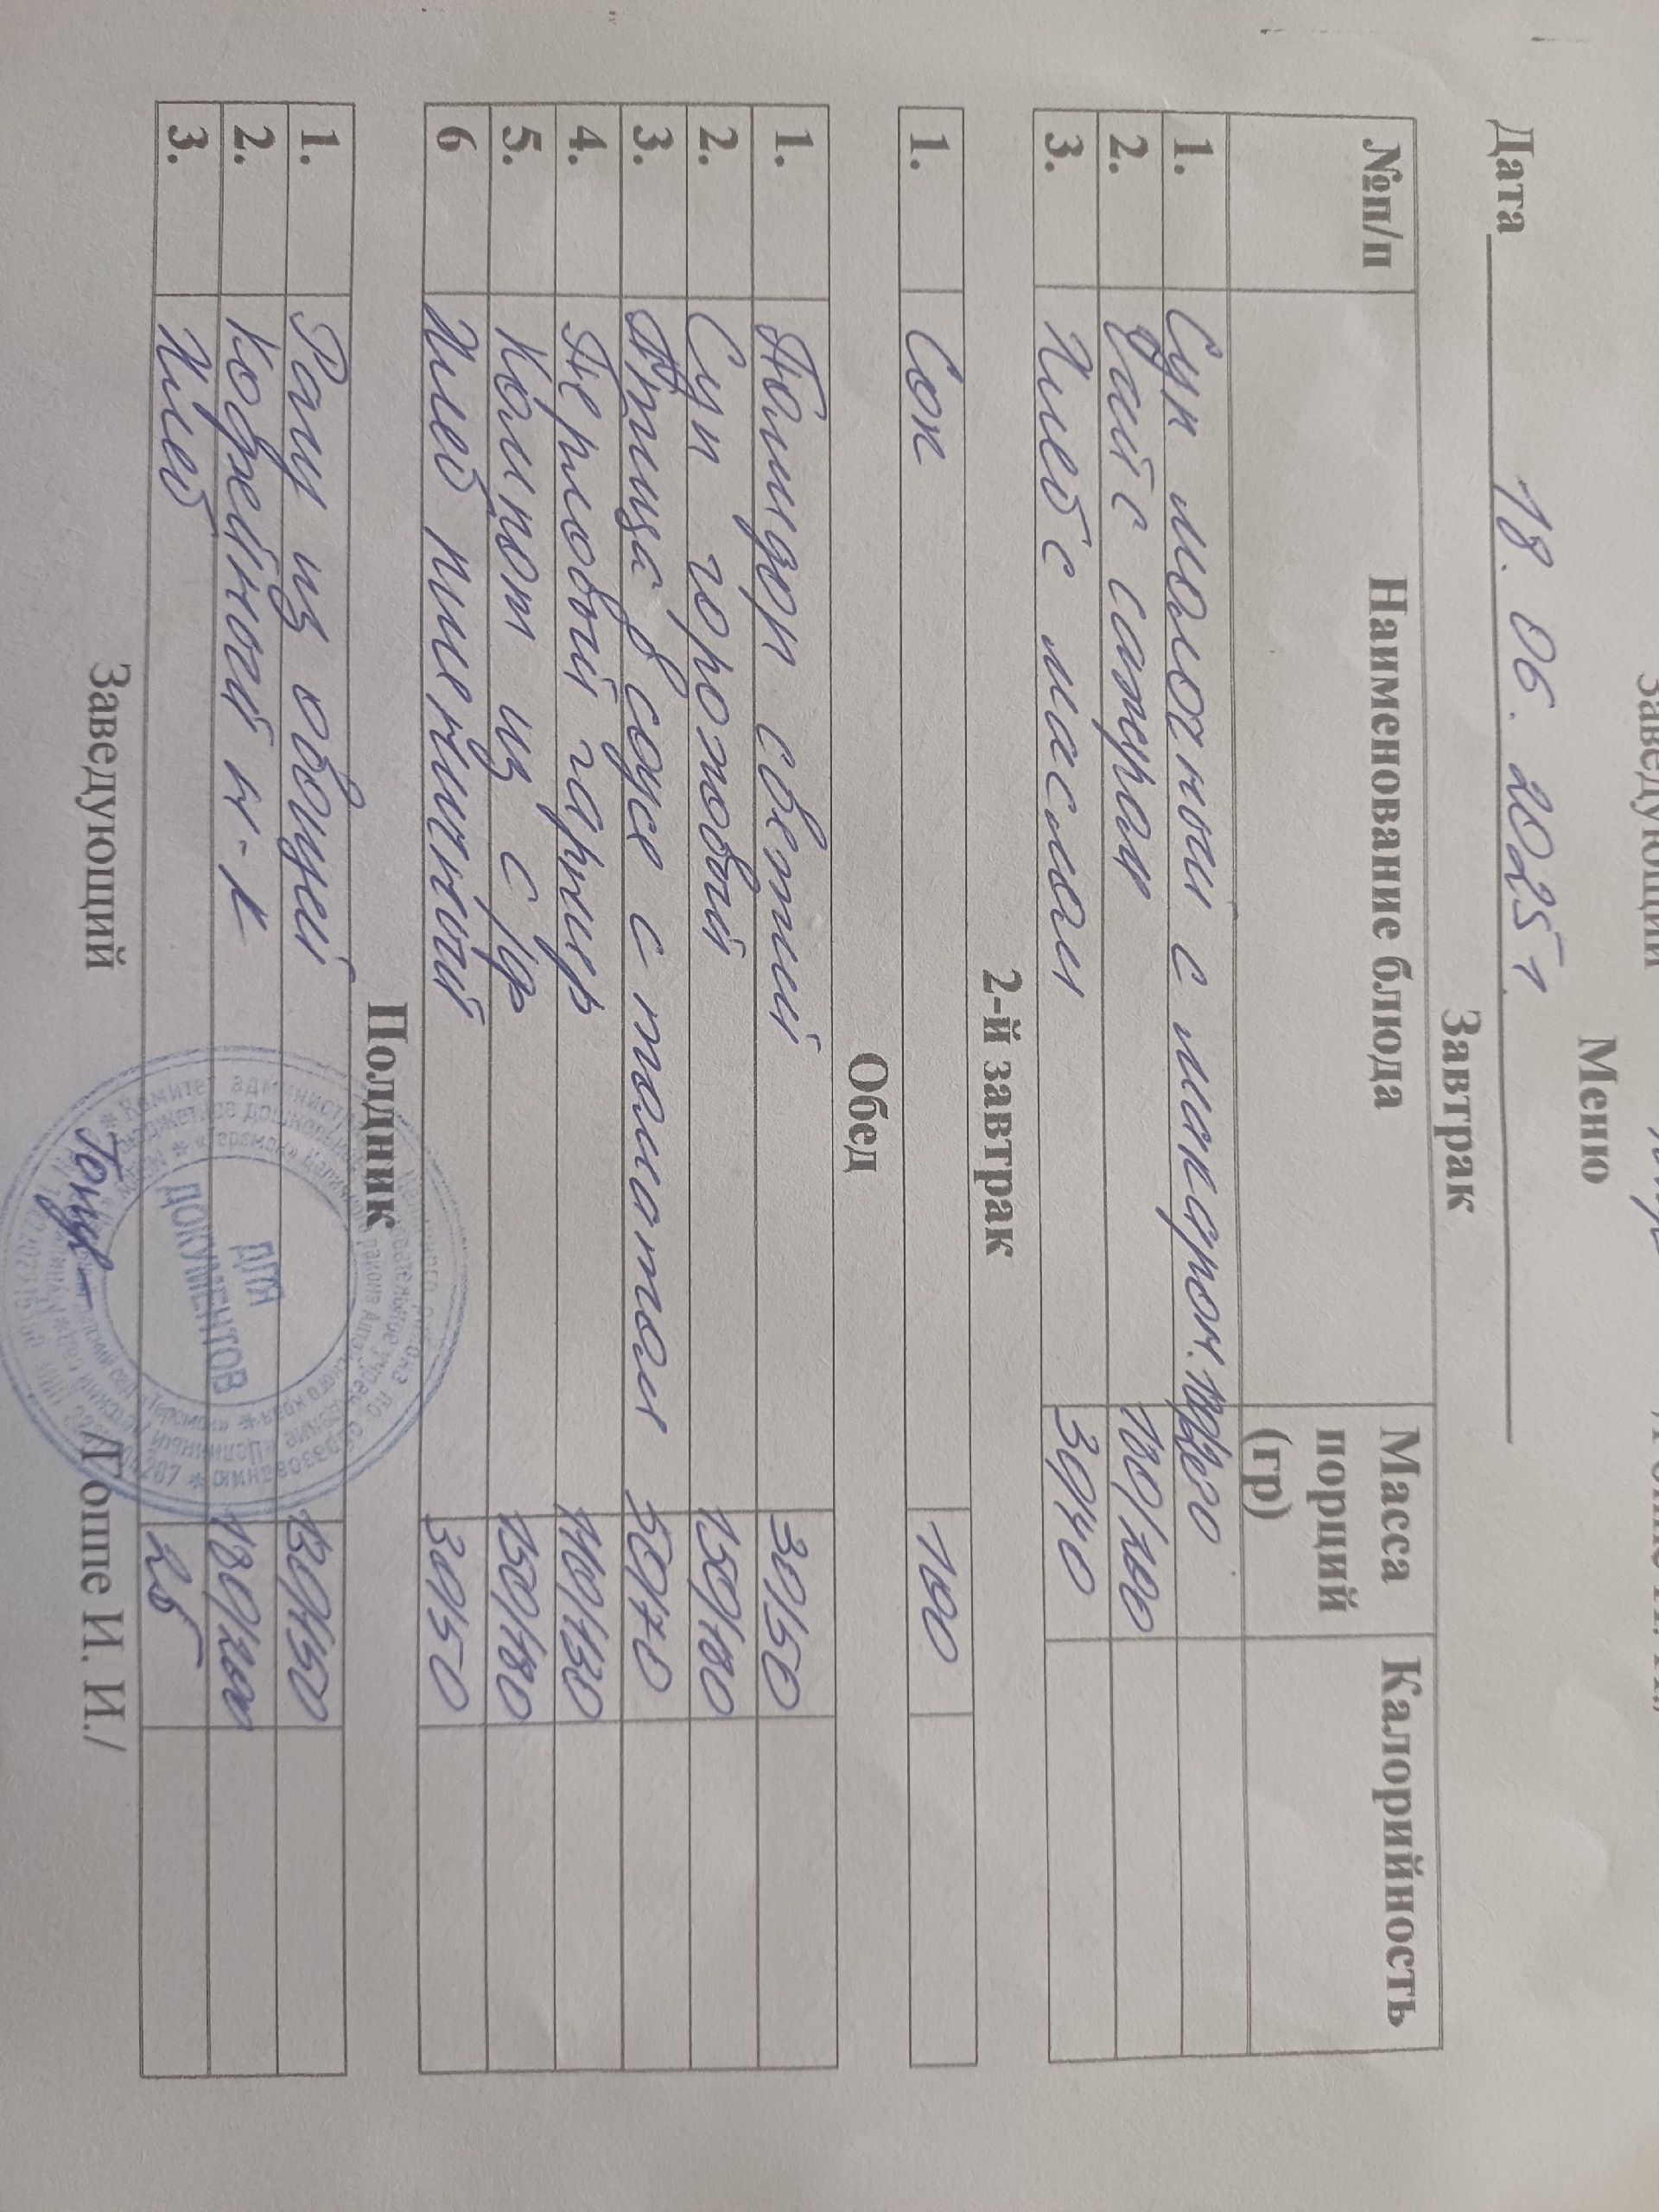 Заведующий
Меню
Дата 18. 06. 2025 г.
Завтрак
№п/п Наименование блюда Масса порций (гр) Калорийность
1. Суп молочный с макарон. 150/180
2. Чай с сахаром 180/200
3. Хлеб с маслом 30/40
2-й завтрак
1. Сок 100
Обед
1. Помидор свежий 30/50
2. Суп гороховый 150/180
3. Птица в соусе с томатом 50/70
4. Перловый гарнир 110/130
5. Компот из с/ф 150/180
6 Хлеб пшеничный 30/50
Полдник
1. Рагу из овощей 130/150
2. Кофейный н-к 180/200
3. Хлеб 25
ДЛЯ
ДОКУМЕНТОВ
Заведующий /Гоппе И. И./